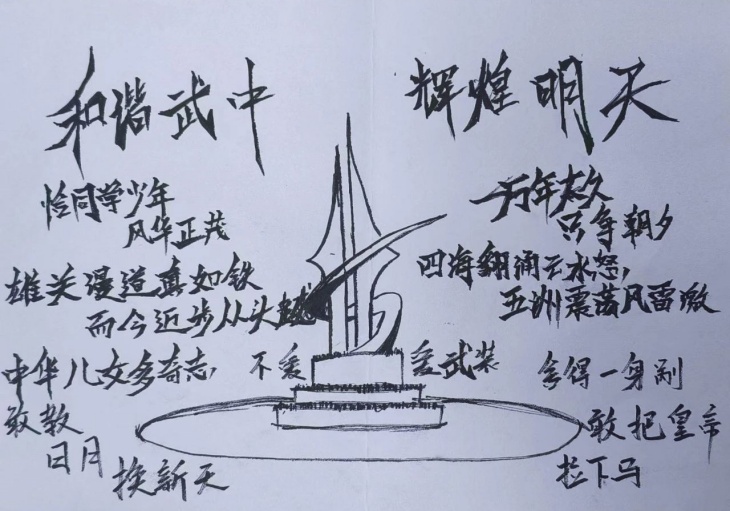 和谐武中
辉煌明天
恰同学少年
风华正茂
雄关漫道真如铁
而今近步从头越
中华儿女多奇志，不爱
爱武装
敢教
日月
换新天
一万年太久
只争朝夕
四海翻涌云水怒，
五洲震荡风雷激
舍得一身剐
敢把皇帝
拉下马